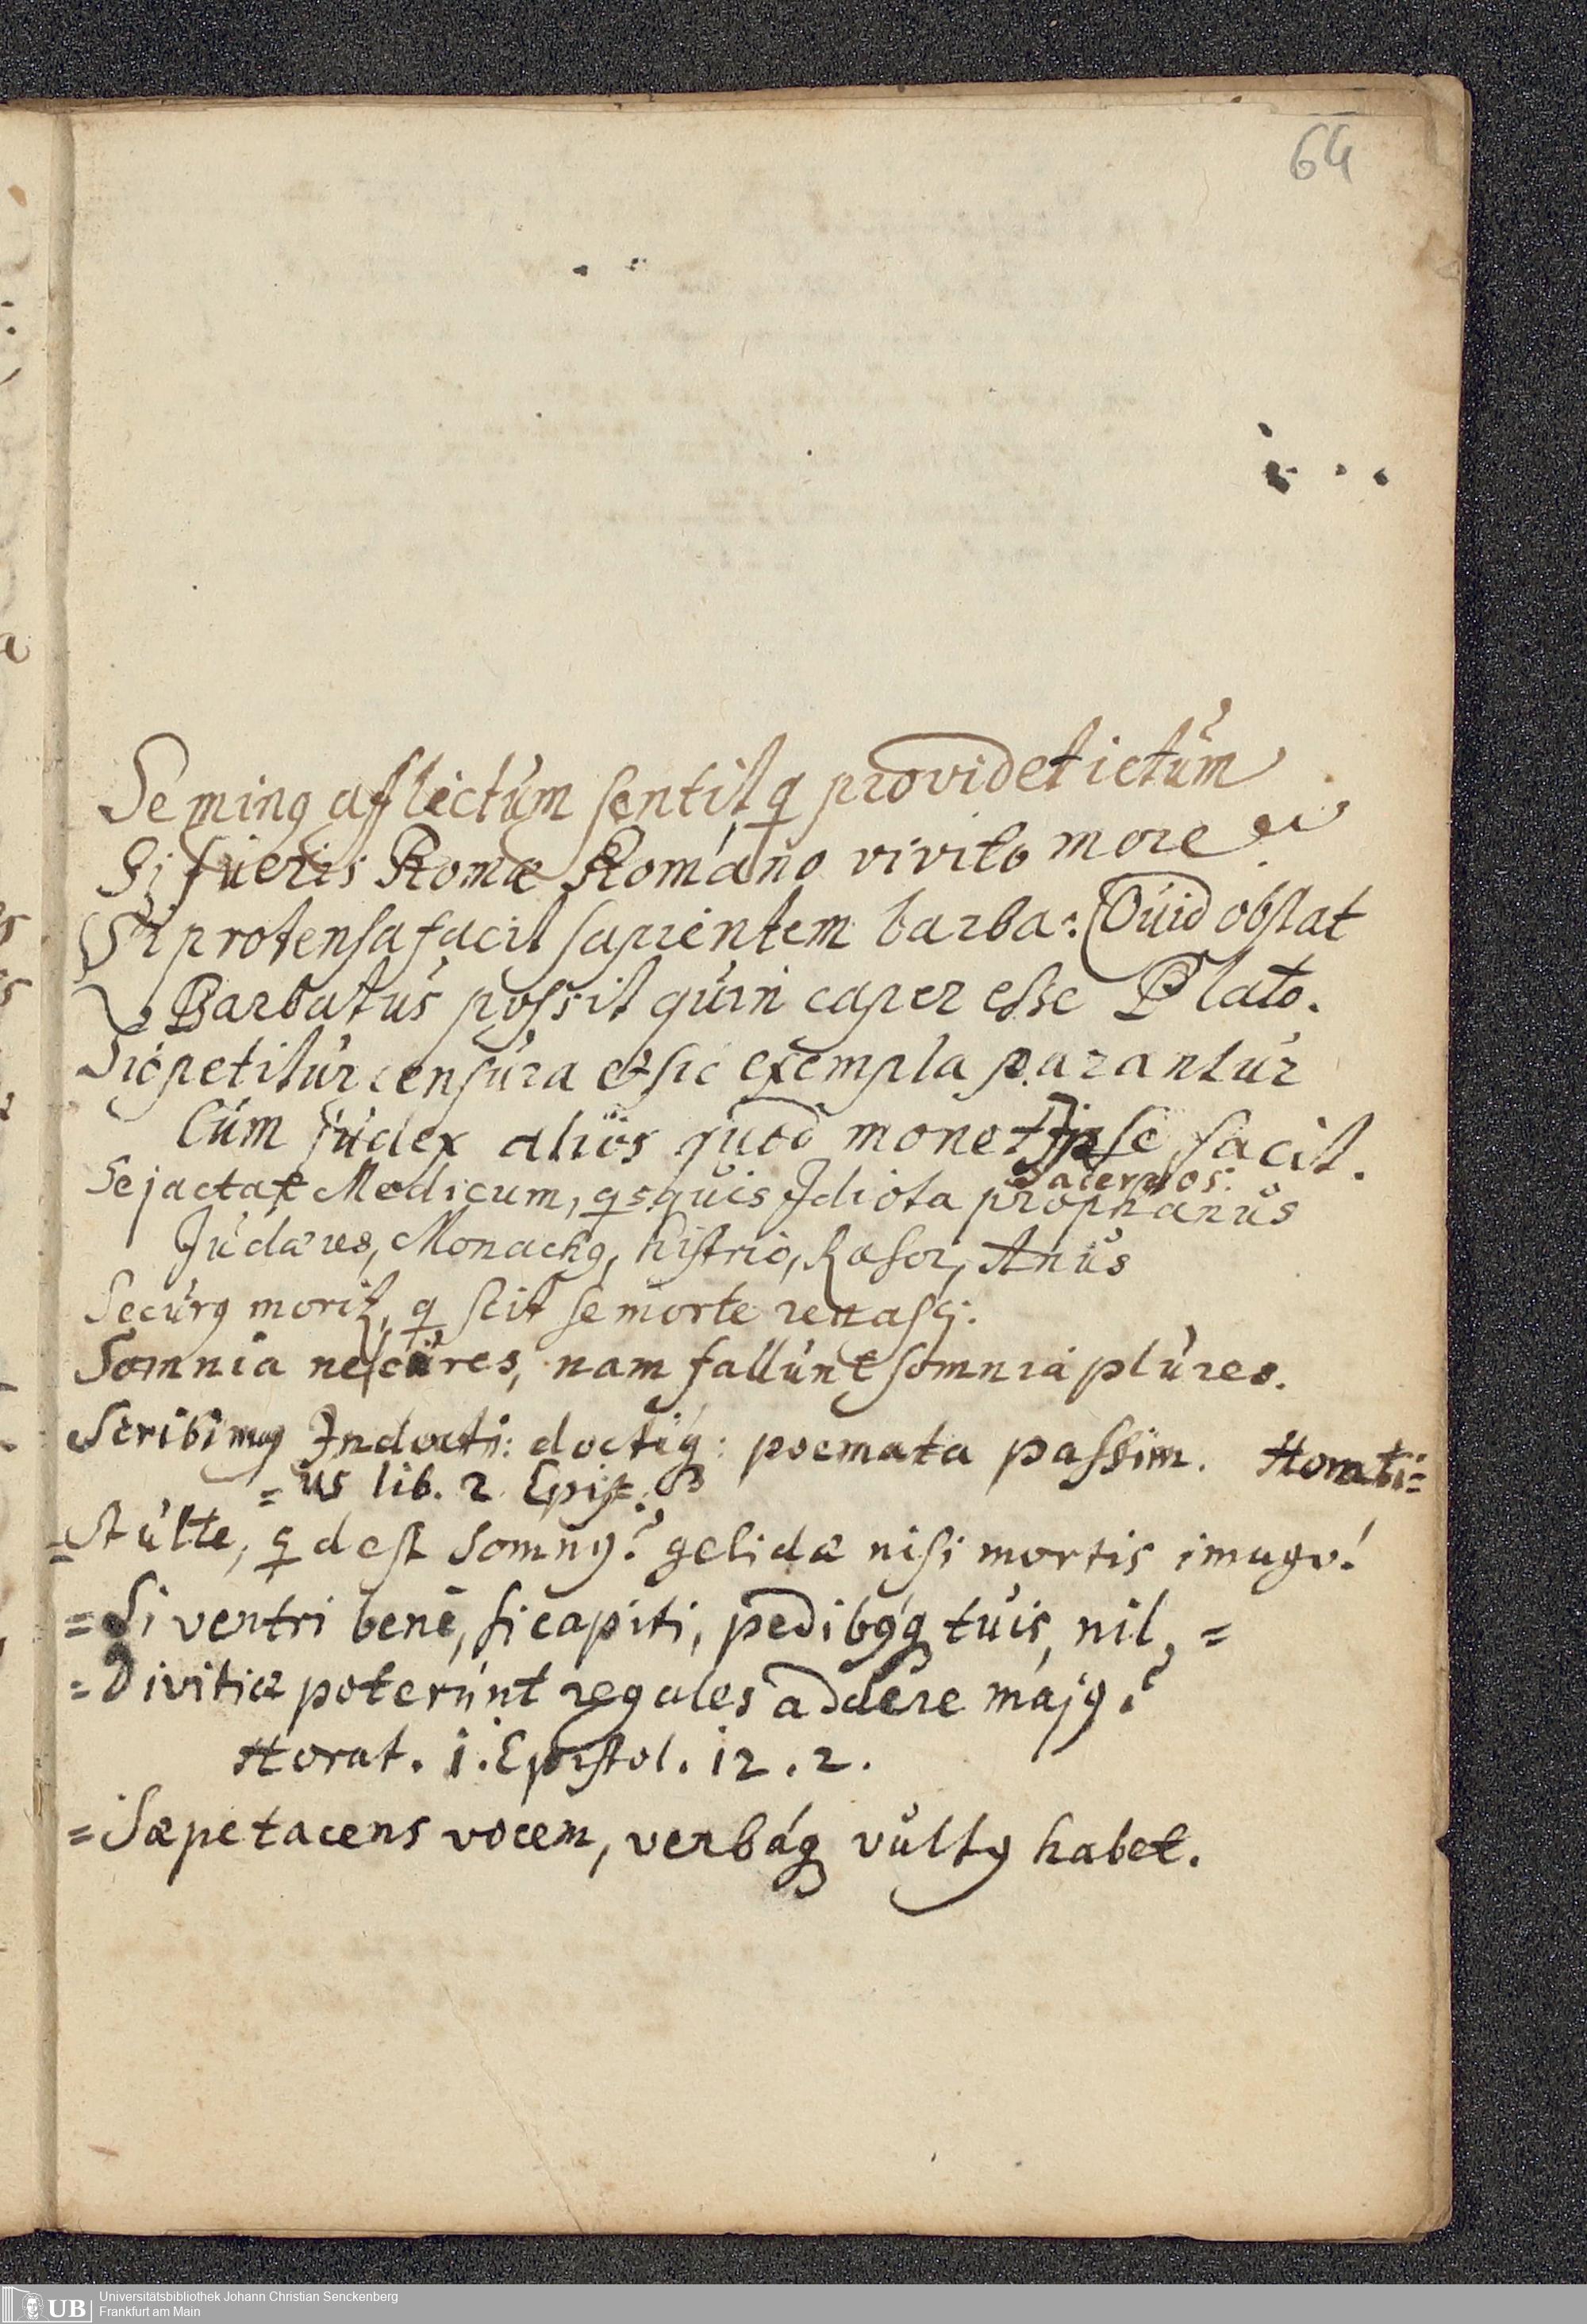 64
Se minꝰ afflictum sentit, q providet ictum
Si fueris Romæ Romano vivito more
Si protensa facit sapientem barba: Quid obstat
Barbatus possit quin caper esse Plato.
Sic petitur censura & sic exempla parantur
Cum judex alios quod monet Ipse facit.
Sacerdos.
Se jactat Medicum, q=quis Idiota prophanus
Judæus, Monachꝰ, histrio, Rasor, Anus
Securꝰ morit, q scit se morte renasci.
Somnia ne cures, nam fallunt somnia plures.
Scribimꝰ Indocti: doctiq: poemata passim. Horati=
=us lib. 2 Epist. 
=Stulte, q d est somnꝰ? gelidæ nisi mortis imago!
=Si ventri bene, si capiti, pedibꝰq tuis, nil, =
=Divitiæ poterunt regales addere majꝰ?
Horat. i. Epistol. i2. 2.
=Sæpe tacens vocem, verbaq vultꝰ habet.
UB Universitätsbibliothek Johann Christian Senckenberg
Frankfurt am Main